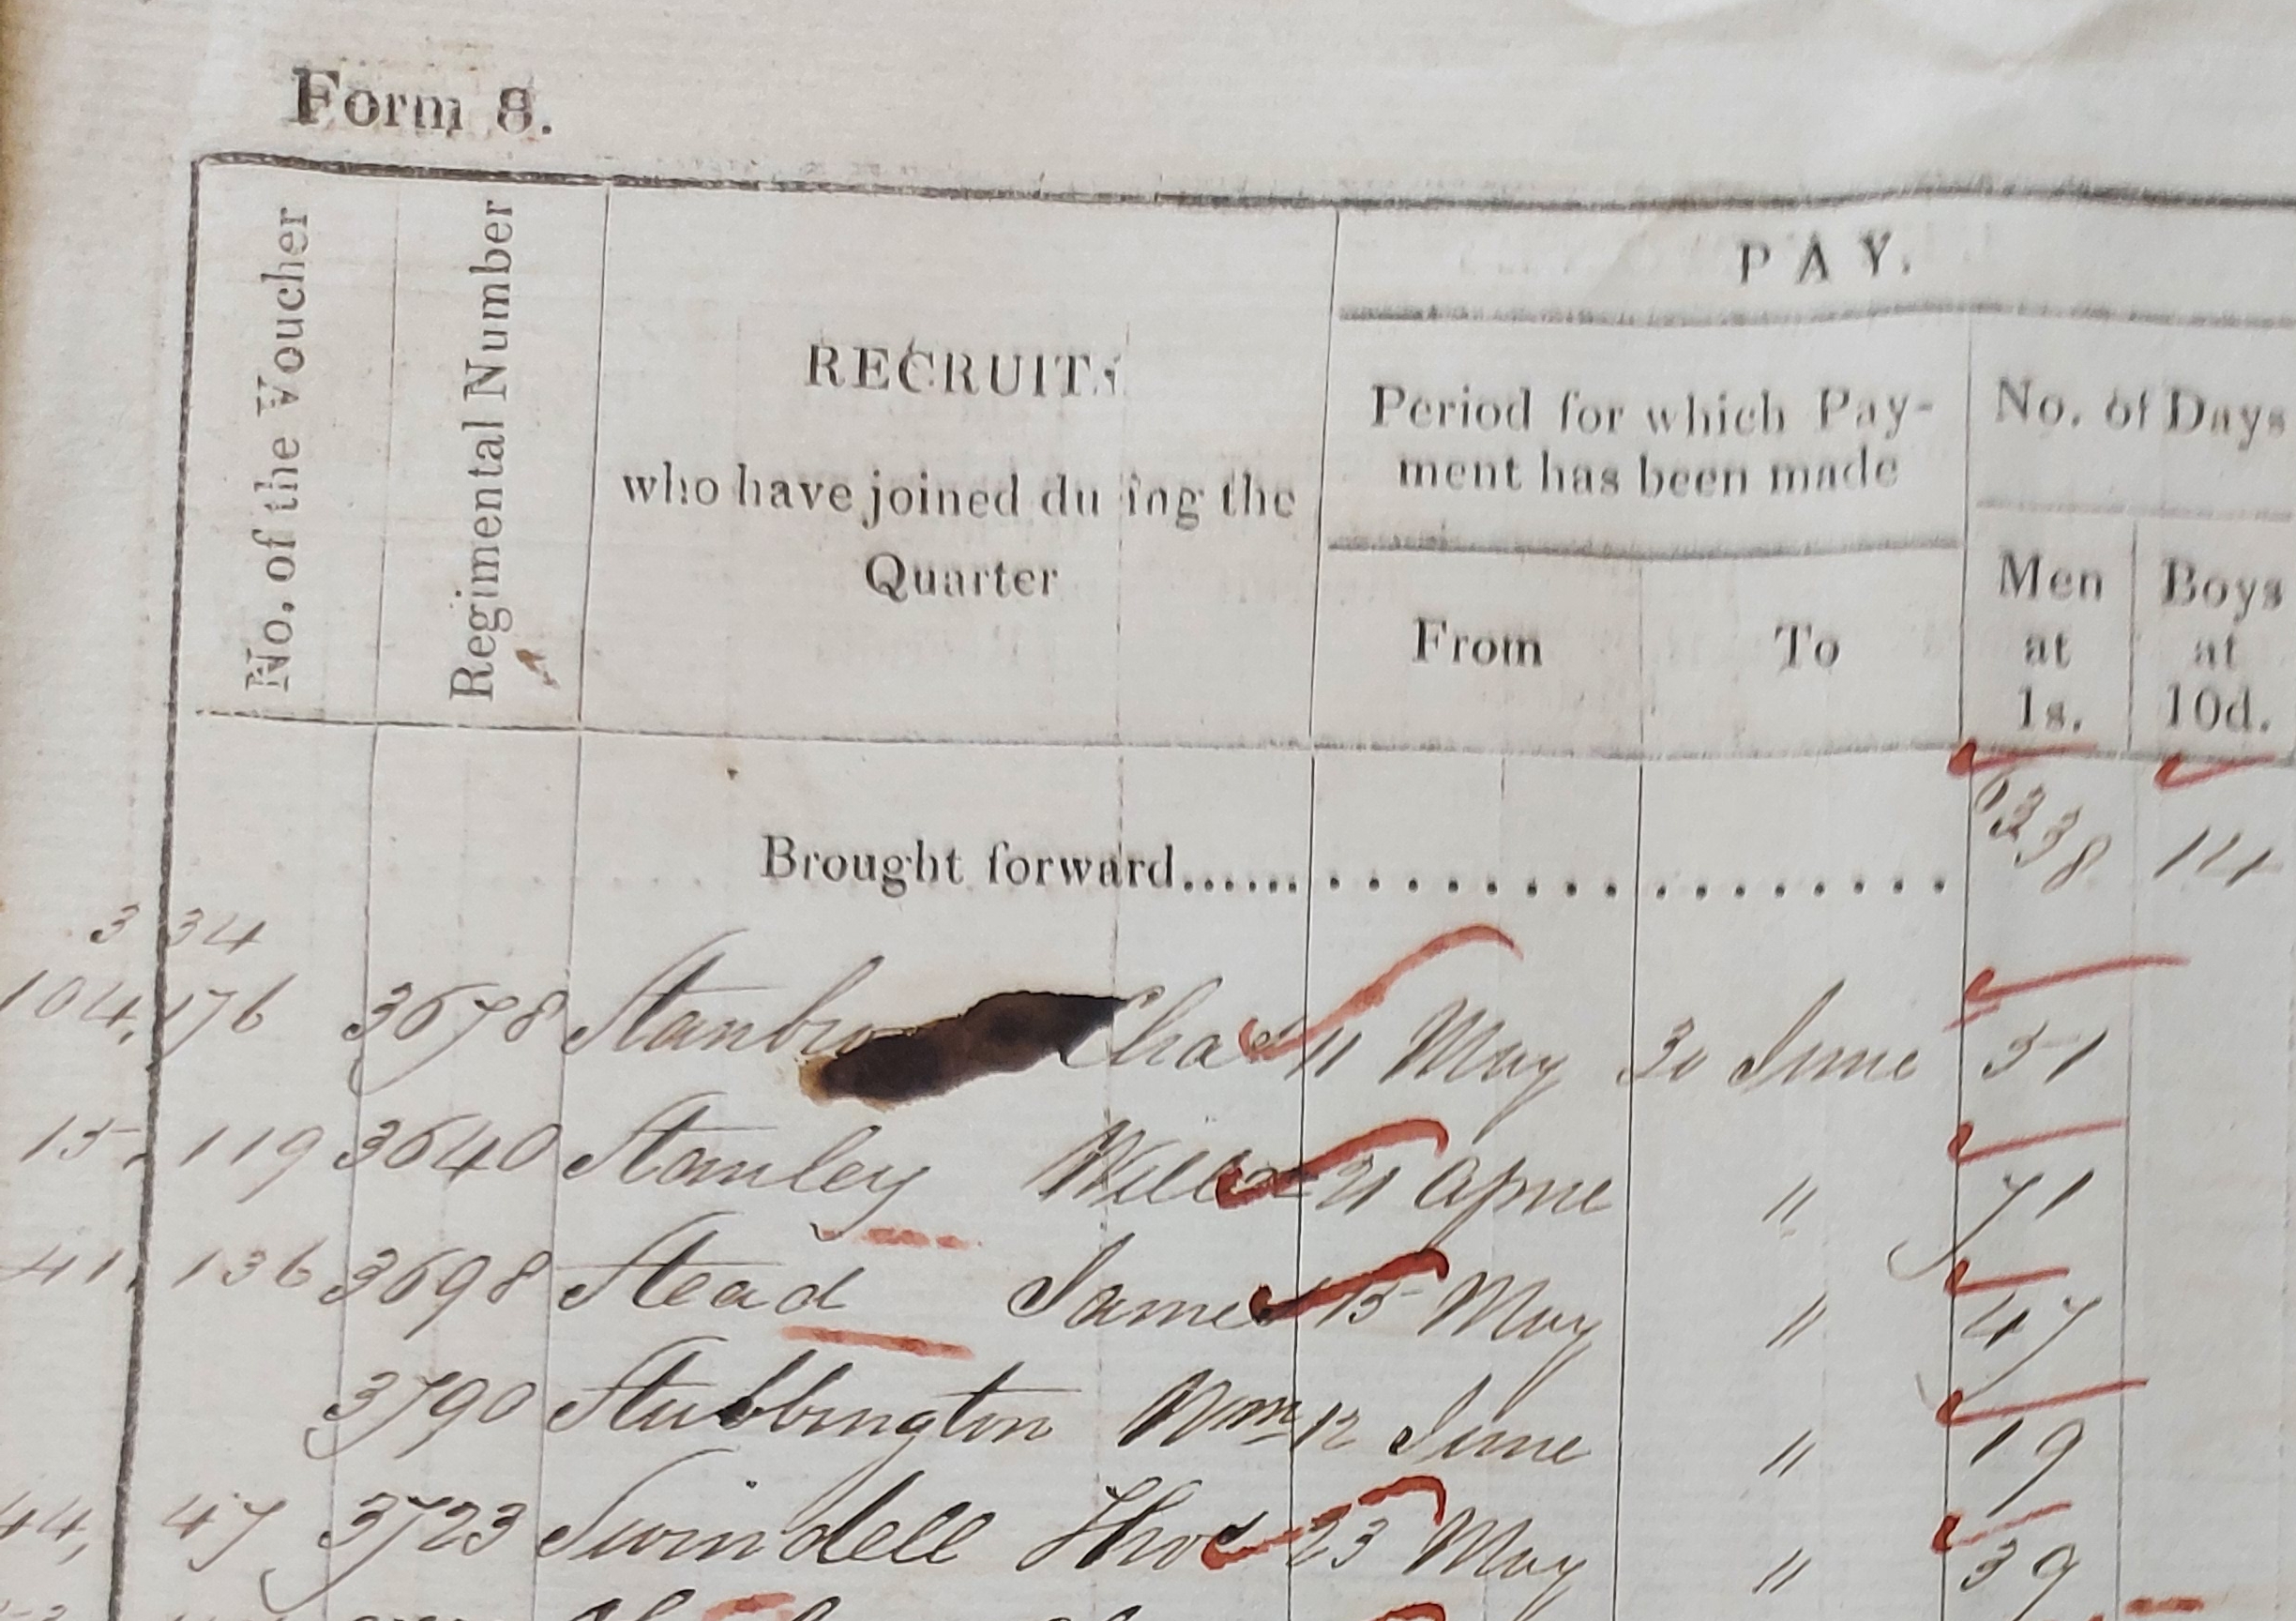 Form 8.
No. of the Voucher
Regimental Number
RECRUITS
who have joined du ing the
Quarter
PAY.
Period for which Pay-
ment has been made
From To
No. of Days
Men at 1s.
Boys at 10d.
Brought forward 6338 111
3 34
104, 176 3678 Chas 11 May 30 June 51
15, 119 3640 Stanley Willm 21 April " 71
41, 136 3698 Stead James 15 May " 47
3790 Stubbington Wm 12 June " 19
44, 47 3723 Swindell Thos 23 May " 39